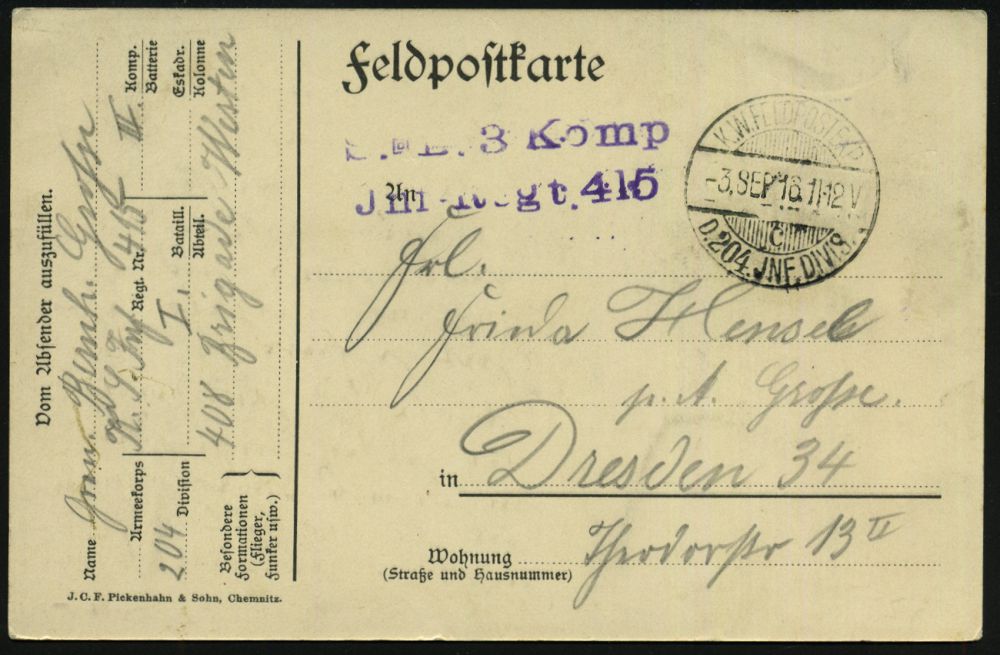 Feldpostkarte
S. B. 3 Komp
Inf. Regt. 415
An
K.W. FELDPOSTEXP.
-3. SEP 16. 11-12 V
C
D. 204. JNF. DIVIS.
Frl.
Frieda Hensel
p. A. Große.
in Dresden 34
Wohnung Theodorstr 13 II
(Straße und Hausnummer)
Vom Absender auszufüllen.
Name Gren. Bernh. Große
K. S. Inf. Regt. Nr. 415 III. Komp.
Armeekorps
Batterie
204 Division I. Bataill.
Abteil.
Eskadr.
Kolonne
Besondere
Formationen
(Flieger,
Funker usw.)
408 Brigade Westen
J. C. F. Pickenhahn & Sohn, Chemnitz.